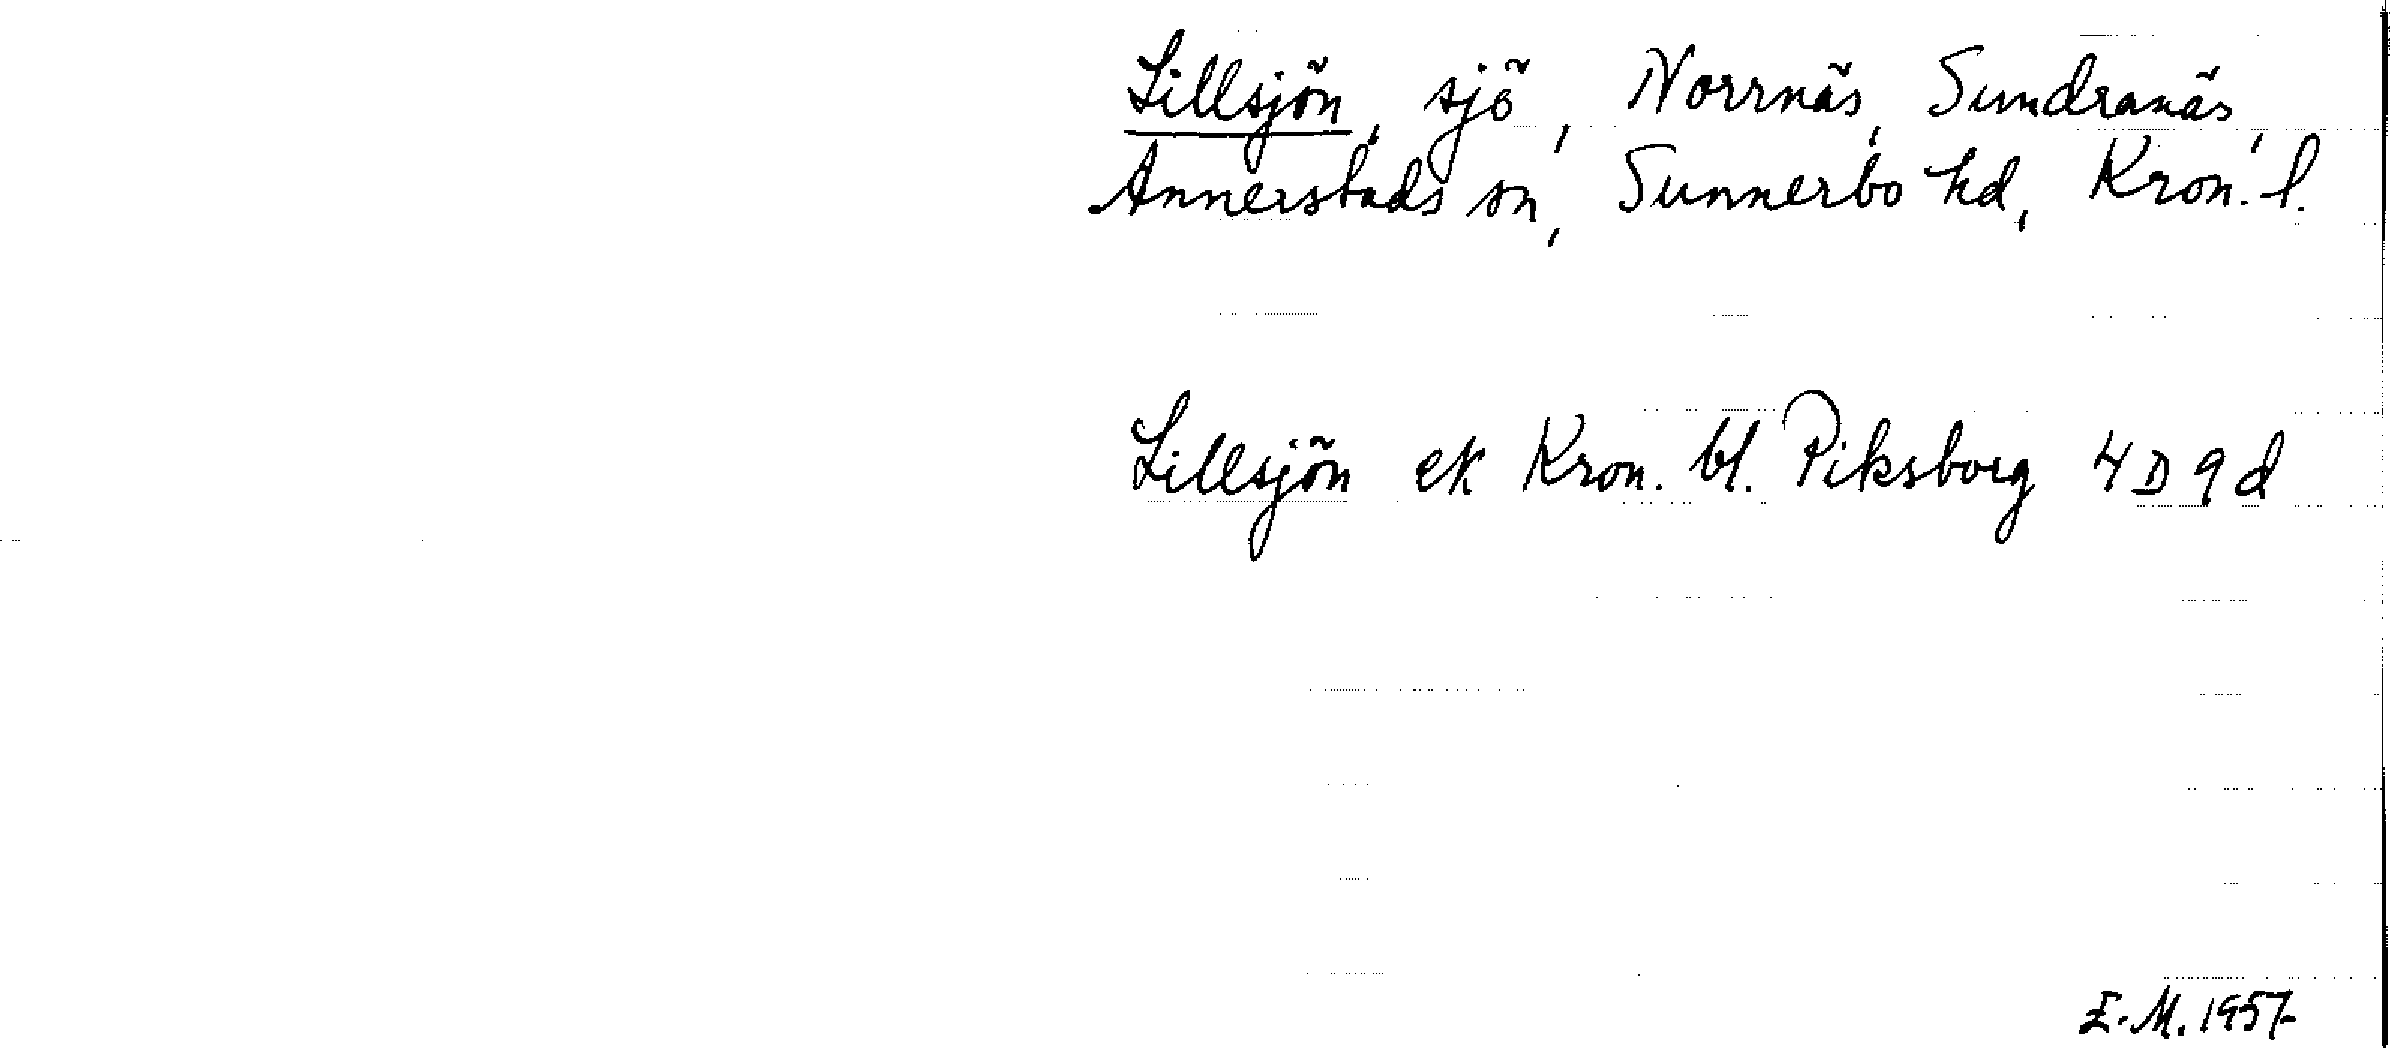 Lillsjön, sjö, Norrnäs, Sundranäs,
Annerstads sn, Sunnerbo hd, Kron. l.
Lillsjön ek Kron. bl. Piksborg 4D9d
E.M. 1957